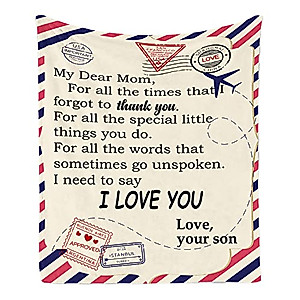 USA
IMPORTANT
LOVE
My Dear Mom,
For all the times that I
forgot to thank you.
For all the special little
things you do.
For all the words that
sometimes go unspoken.
I need to say
I LOVE YOU
Love,
your son
BUENOS AIRES
APPROVED
ARGENTINA
ISTANBUL